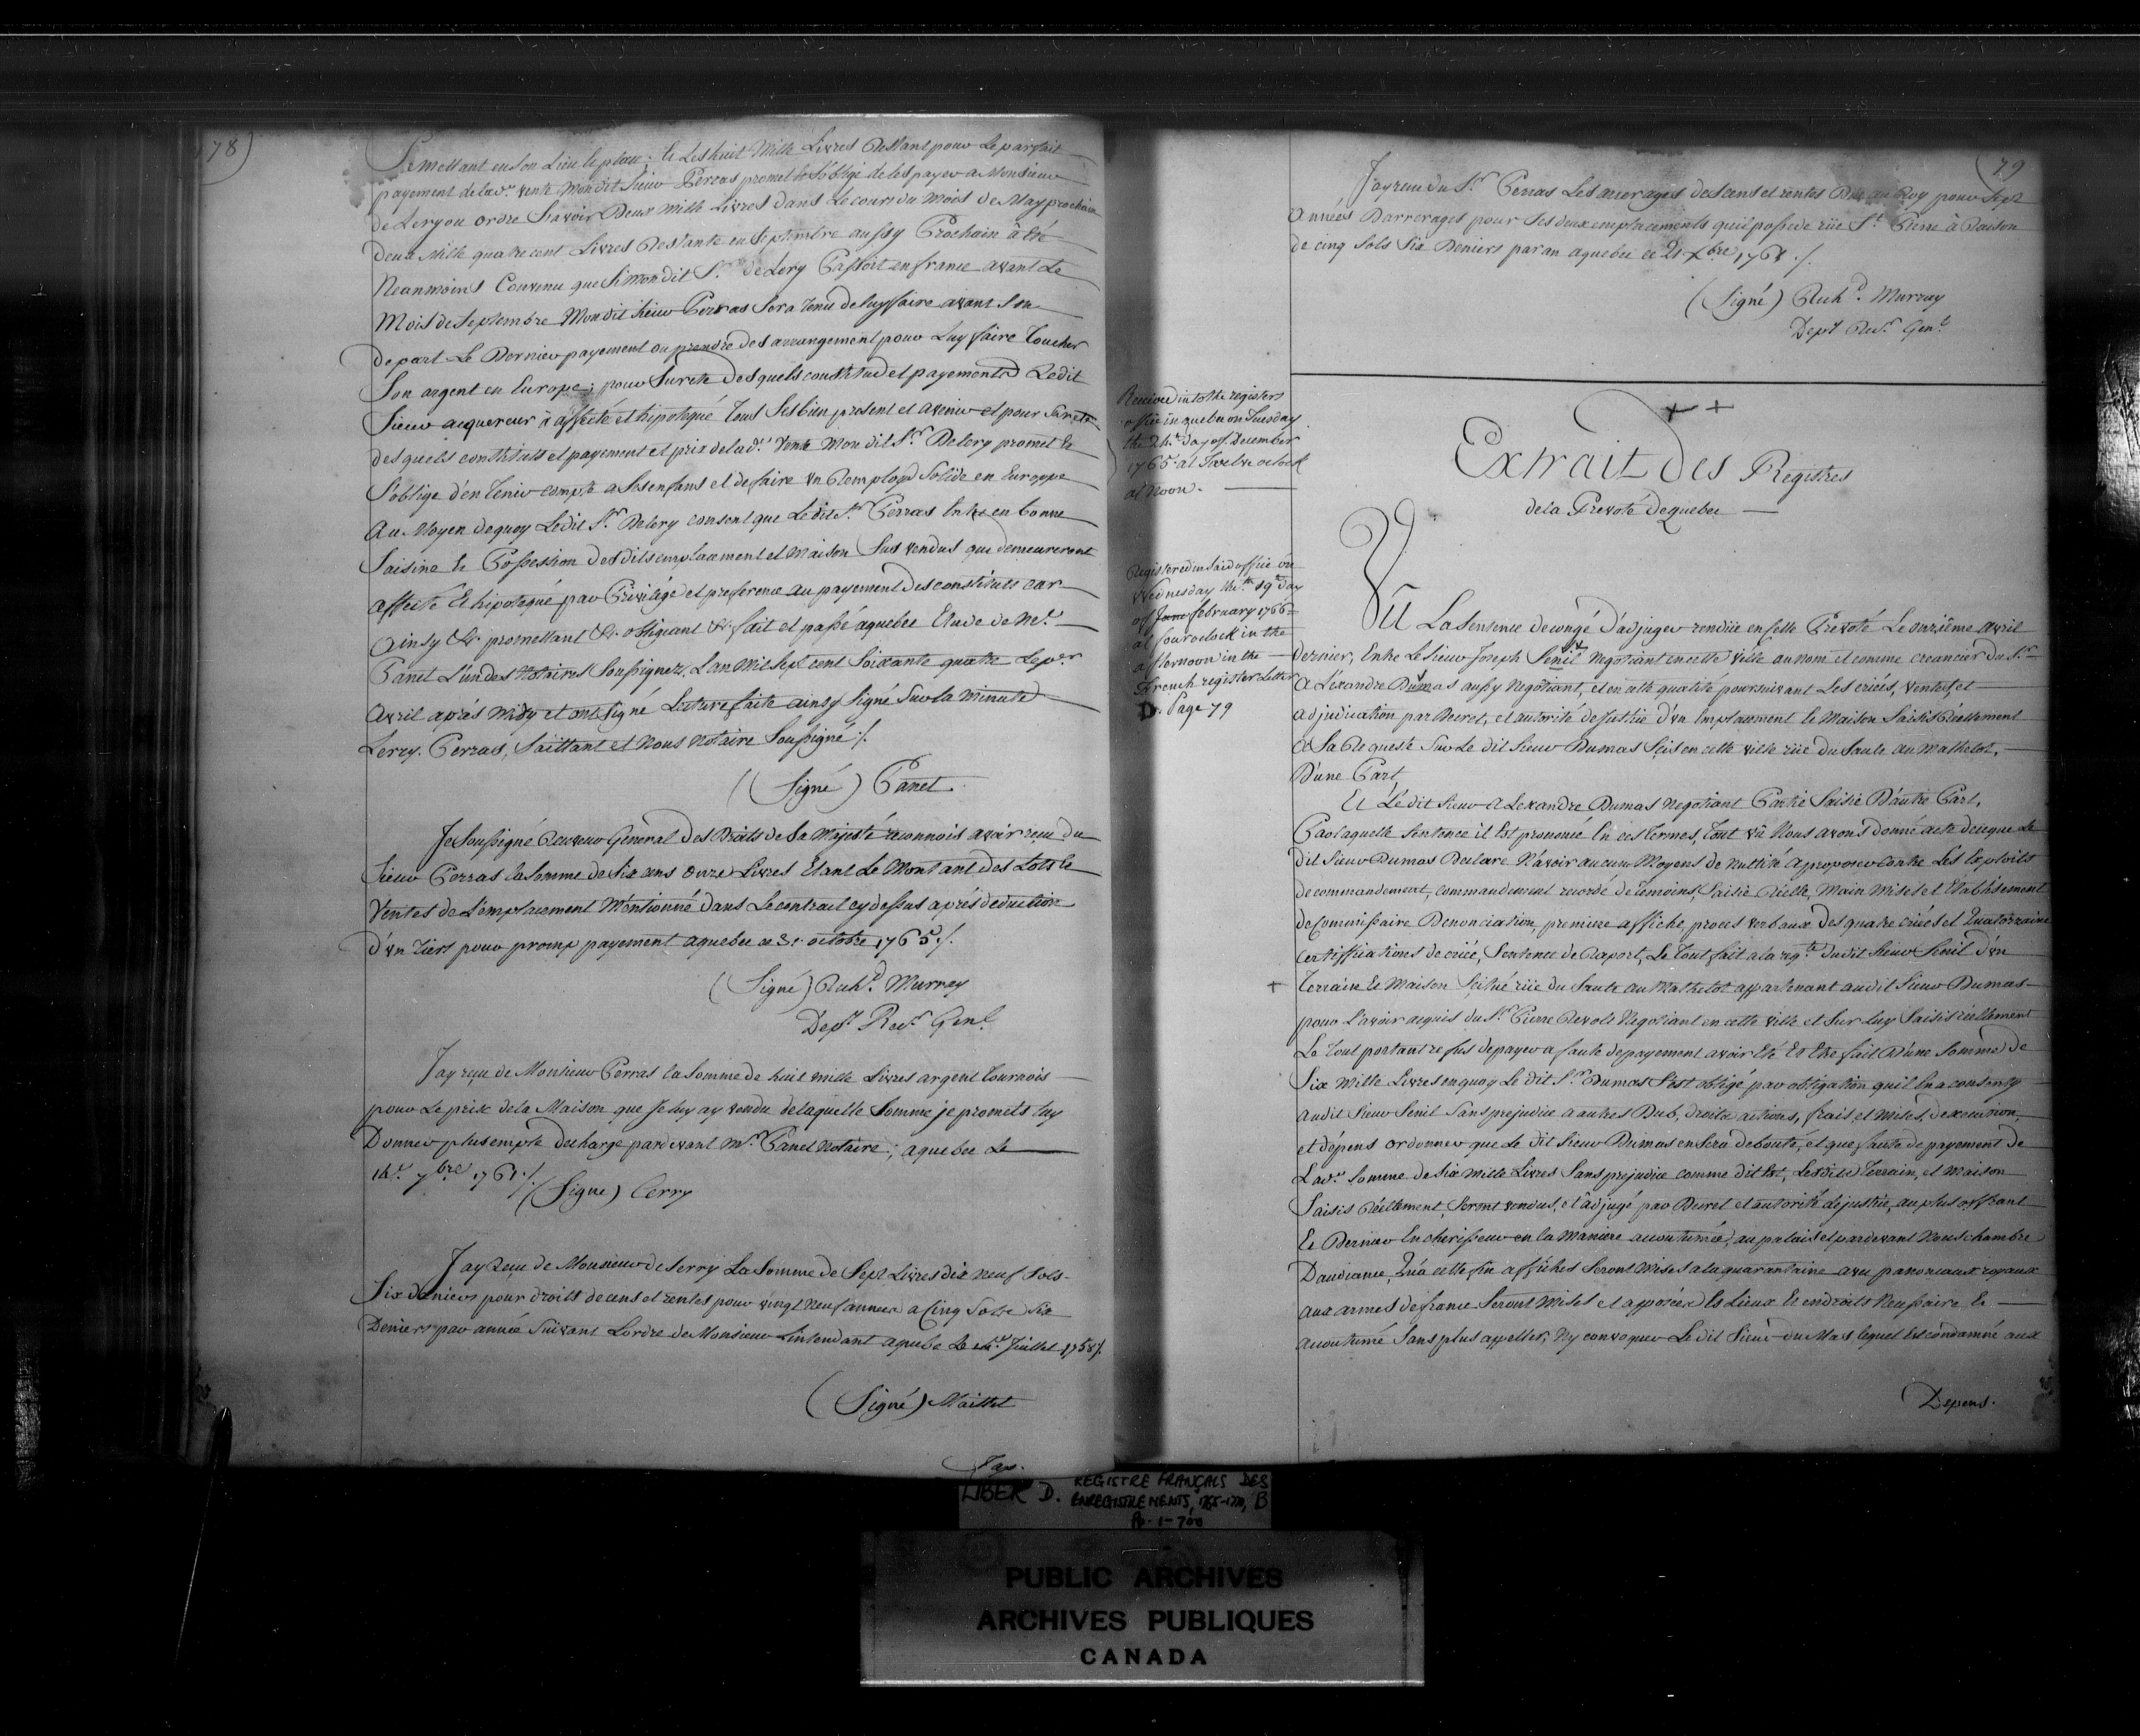 78)
Se mettant en son Lieu & place; & Les huit Mille Livres Restant pour Le parfait
payement de lad.e vente Mondit Sieur Perras promet & S'oblige de les payer a Monsieur
de Lery ou ordre Sçavoir Deux Mille Livres dans Le cours du Mois de May prochain
Deux Mille quatre cent Livres Restante en Septembre aussy Prochain à été
Neanmoins Convenu que Si mondit S.r de Lery Passoit en france avant Le
Mois de Septembre Mondit Sieur Perras Sera Tenu de luy faire avant Son
depart Le Dernier payement ou prendre des arrangement pour Luy faire Toucher
Son argent en Europe; pour Sureté desquels constitud et payements Ledit
Sieur acquereur a affecté et hipotequé Tous Ses bien present et avenir et pour Sureté
desquels constituts et payement et prix de lad.e Vente Mondit S.r Delery promet &
S'oblige d'en Tenir compte a Ses enfans et de faire un Remploy Solide en Europpe
Au Moyen de quoy Ledit S.r Delery consent que Ledit S.r Perras Entre en bonne
Saisine & Possession des dits emplacement et Maison Sus vendus que demeureront
affecté & hipotequé par Privilége et preference au payement des constituts car
Ainsy &.a promettant &.a obligeant &.a fait et passé a quebec Etude de Me.
Panet L'un des Notaires Soussignez, L'an Mil Sept cent Soixante quatre Le p.er
Avril aprés Midy et ont Signé Lecture faite ainsy Signé Sur la Minute
Lerry. Perras, Saillant et Nous Notaire Soussigné ./.
(Signé) Panet
Je Soussigné Receveur General des Droits de Sa Majesté reconnois avoir reçu du
Sieur Perras la Somme de Six cens Onze Livres Etant Le Montant des Lots &
Ventes de L'emplacement Mentionné dans Le contrait cy dessus aprés deduction
d'un Tiers pour promp payement a quebec ce 31 octobre 1765 ./.
(Signé) Rich.d Murray
Dep.y Rec.r Gen.l
J'ay reçu de Monsieur Perras la Somme de huit mille Livres argent Tournois
pour Le prix de la Maison que Je luy ay vendu de laquelle Somme je promets luy
Donner plus emple decharge pardevant M.r Panet Notaire; a quebec Le
7.bre 1761 ./.
(Signé) Lerry
J'ay Reçu de Monsieur de Lerry La Somme de Sept Livres dix neuf Sols
Six Deniers pour droits de cens et rentes pour vingt neuf année a Cinq Sols Six
Deniers par année Suivant L'ordre de Monsieur Lintendant a quebec Le Juillet 1758 ./.
(Signé) Maillet
J'ay.
79
J'ay reçu du S.r Perras Les arrerages de Cens et rentes Due au Roy pour Sept
Années D'arrerages pour Ses deux emplacements qu'il possede rüe S.t Pierre à Raison
de cinq Sols Six Deniers par an a quebec ce 21 Xbre
(Signé) Rich.d Murray
Dep.y Rec.r Gen.l
Received into the registers
office in quebec on Tuesday
the 24.th day of December
1765 at Twelve oclock
at Noon.
Registered in Said office on
Wednesday the 19.th day
of June february 1766
at four oclock in the
afternoon in the
French register Letter
D. Page 79
Extrait des Registres
de la Prevoté de quebec
Vû La Sentence de congé d'adjuger rendüe en Selle Prevoté Le onziéme avril
dernier, Entre Le Sieur Joseph Senil Negotiant en cette Ville au nom et comme creancier du S.r
Alexandre Dumas aussy Negotiant, et en cette qualité poursuivant Les criées, Ventes, et
adjudication par Decret, et autorité de Justice d'un Emplacement & Maison Saisis Réellement
a Sa Requeste Sur Le dit Sieur Dumas Scis en cette ville rüe du Saule au Mathelot,
D'une Part,
Et Le dit Sieur Alexandre Dumas Negotiant Partie Saisie D'autre Part,
Par laquelle Sentence il Est prononcé En ces Termes, Tout vû Nous avons donné acte de ce que Le
dit Sieur Dumas Declare N'avoir aucun Moyens de nullité a proposer contre Les Exploits
de commandement, commandement recordé de Temoins, Saisie Réelle, Main Mise et Etablissement
de Commissaire Denonciation, premiere affiche, proces verbaux des quatre criées et Quatorzaine
Certiffications de criée, Sentence de Raport, Le Tout fait a la req.te du dit Sieur Senil d'un
+ Terrain & Maison Scitué rüe du Saule au Mathelot appartenant audit Sieur Dumas
pour L'avoir acquis du S.r Pierre Revole Negotiant en cette Ville et Sur luy Saisis réellement
Le Tout portant refus de payer a faute de payement avoir Eté & Etre fait D'une Somme de
Six Mille Livres en quoy Le dit S.r Dumas S'est obligé par obligation qu'il En a consenty
audit Sieur Senil Sans prejudice a autres Dub, droits actions, frais, et Mises d'execution,
et dépens ordonner que Le dit Sieur Dumas en Sera debouté, et que faute de payement de
Lad.e Somme de Six Mille Livres Sans prejudice comme dit Est, Les dits Terrain, et Maison
Saisis Réellement, Seront vendus, et adjugé par Decret et autorité de justice, au plus offrant
& Dernier Encherisseur en la Maniere accoutumée, au palais et pardevant Nous chambre
D'audiance, Qu'a cette fin affiches Seront Mises a la quarantaine avec panonceaux royaux
aux armes de france Seront Mises et apposées Es Lieux & endroits Necessaire &
accoutumé Sans plus appeller, Ny convoquer Le dit Sieur du Mas lequel Est condamné aux
Depens.
LIBER D. REGISTRE FRANÇAIS DES
ENREGISTREMENTS, 1765-1770, B
Pp. 1-700
PUBLIC ARCHIVES
ARCHIVES PUBLIQUES
CANADA